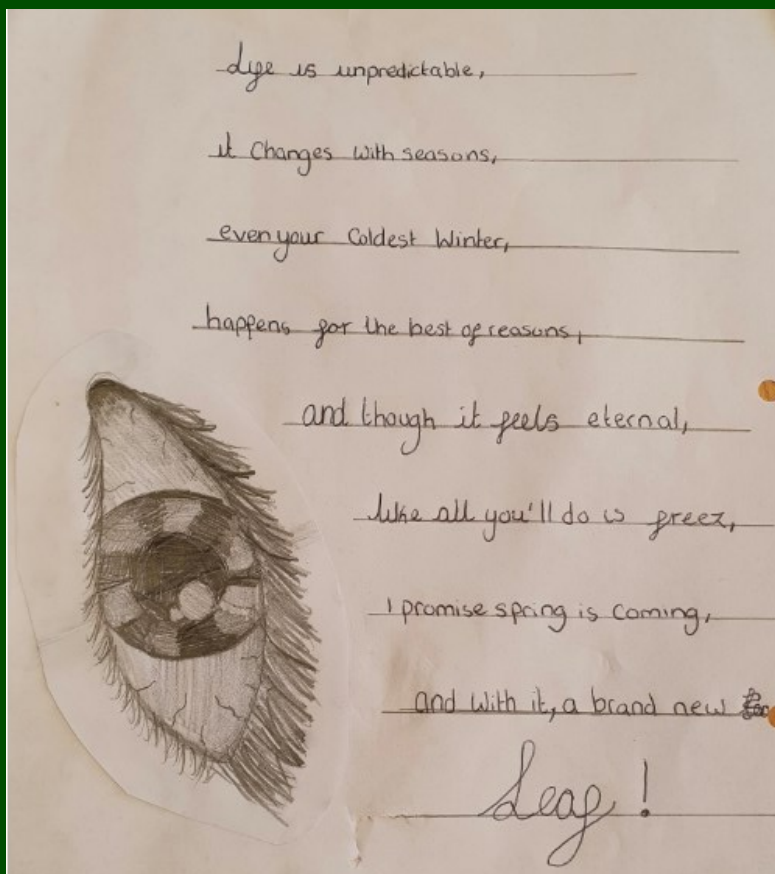 life is unpredictable,
it changes with seasons,
even your Coldest Winter,
happens for the best of reasons,
and though it feels eternal,
like all you'll do is freez,
I promise spring is coming,
and with it, a brand new
Leaf!